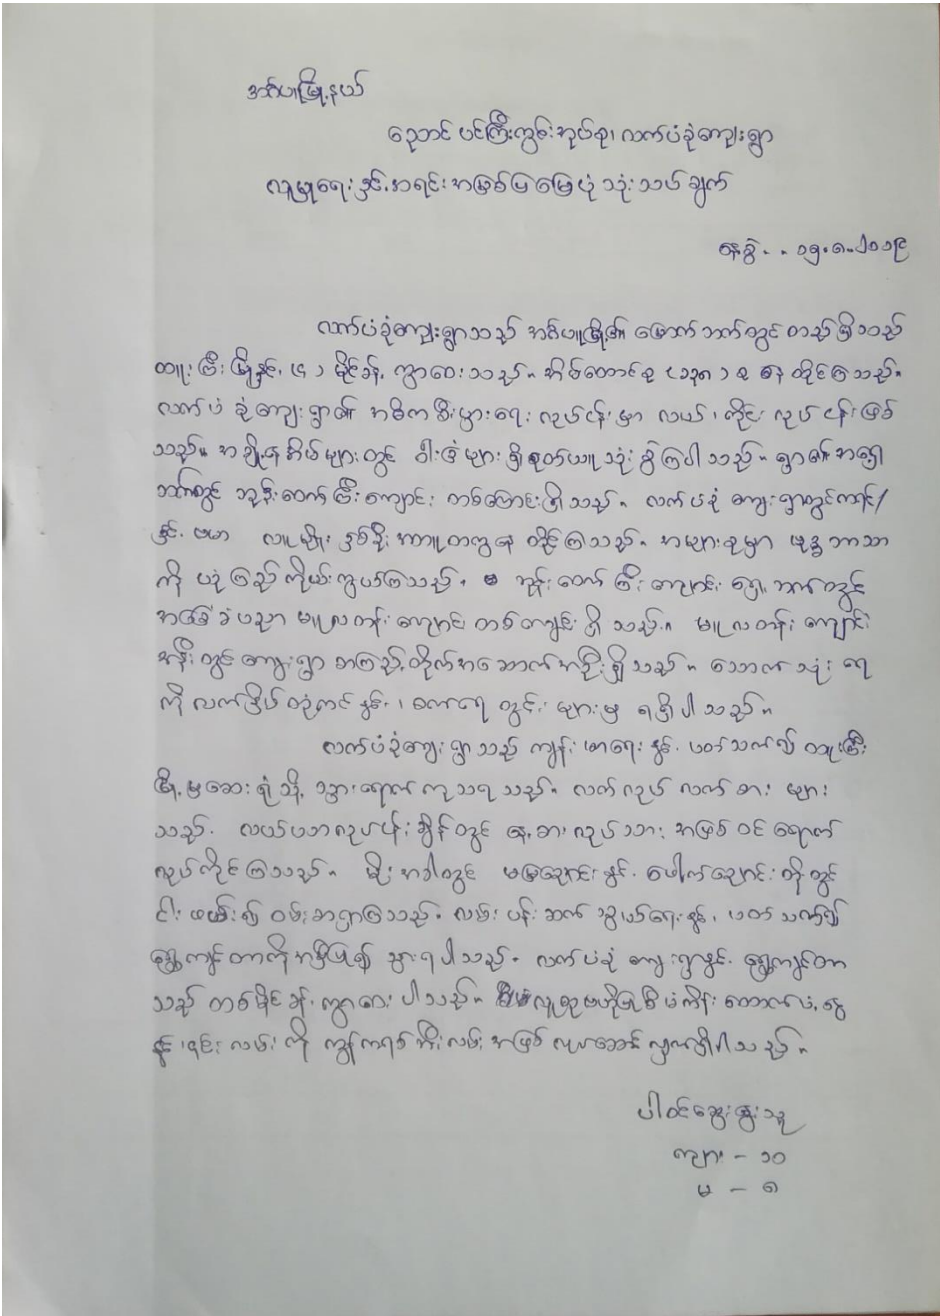 အင်္ဂပူမြို့နယ်
ညောင်ပင်ကြီးကွင်းအုပ်စု၊ လက်ပံခုံကျေးရွာ
လူမှုရေးနှင့်အရင်းအမြစ်ပြမြေပုံသုံးသပ်ချက်
နေ့စွဲ - - ၁၅.၈.၂၀၁၉
လက်ပံခုံကျေးရွာသည် မြောက်ဘက်တွင် တည်ရှိသည်
ထူးကြီးမြို့နှင့် (၄) မိုင်ခန့် ကွာဝေးသည်။ အိမ်ထောင်စု (၁၃၈) စု နေထိုင်ကြသည်။
လက်ပံခုံကျေးရွာ၏ အဓိကစီးပွားရေးလုပ်ငန်းမှာ လယ်၊ ကိုင်းလုပ်ငန်းဖြစ်
သည်။ အချို့နေအိမ်များတွင် ဝါးခြံများရှိ ခုတ်ယူသုံးစွဲကြပါသည်။ ရွာ၏အရှေ့
ဘက်တွင် ဘုန်းတော်ကြီးကျောင်းတစ်ကျောင်းရှိသည်။ လက်ပံခုံကျေးရွာတွင် ကရင်/
နှင့် ဗမာ လူမျိုးနှစ်မျိုး အတူတကွနေထိုင်ကြသည်။ အများစုမှာ ဗုဒ္ဓဘာသာ
ကို ယုံကြည်ကိုးကွယ်ကြသည်။ ဘုန်းတော်ကြီးကျောင်းရှေ့ဘက်တွင်
အခြေခံပညာမူလတန်းကျောင်းတစ်ကျောင်းရှိသည်။ မူလတန်းကျောင်း
အနီးတွင် ကျေးရွာစာကြည့်တိုက်အဆောက်အဦးရှိသည်။ သောက်သုံးရေ
ကို လက်နှိပ်တုံကင်နှင့်၊ စက်ရေတွင်းများမှ ရရှိပါသည်။
လက်ပံခုံကျေးရွာသည် ကျန်းမာရေးနှင့်ပတ်သက်၍ ထူးကြီး
မြို့မှဆေးရုံသို့ သွားရောက်ကုသရသည်။ လက်လုပ်လက်စားများ
သည် လယ်ယာလုပ်ငန်းချိန်တွင် နေ့စားလုပ်သားအဖြစ် ဝင်ရောက်
လုပ်ကိုင်ကြသည်။ မိုးအခါတွင် မမြချောင်းနှင့် ပေါက်ချောင်းတို့တွင်
ငါးဖမ်း၍ ဝမ်းစာရှာကြသည်။ လမ်းပန်းဆက်သွယ်ရေးနှင့်ပတ်သက်၍
ရွှေကျင်တာကို အမှီပြု၍ သွားရပါသည်။ လက်ပံခုံကျေးရွာနှင့် ရွှေကျင်တာ
သည် တစ်မိုင်ခန့်ကွာဝေးပါသည်။ လူထုဗဟိုပြုစီမံကိန်းထောက်ပံ့ငွေ
နှင့် ၎င်းလမ်းကို ကွန်ကရစ်ကြီးလမ်းအဖြစ် လုပ်ဆောင်လျှက်ရှိပါသည်။
ပါဝင်ဆွေးနွေးသူ
ကျား - ၁၀
မ - ၈